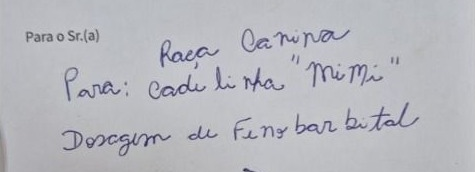 Para o Sr.(a)
Raça Canina
Para: Cadelinha "Mimi"
Dosagem de Fenobarbital